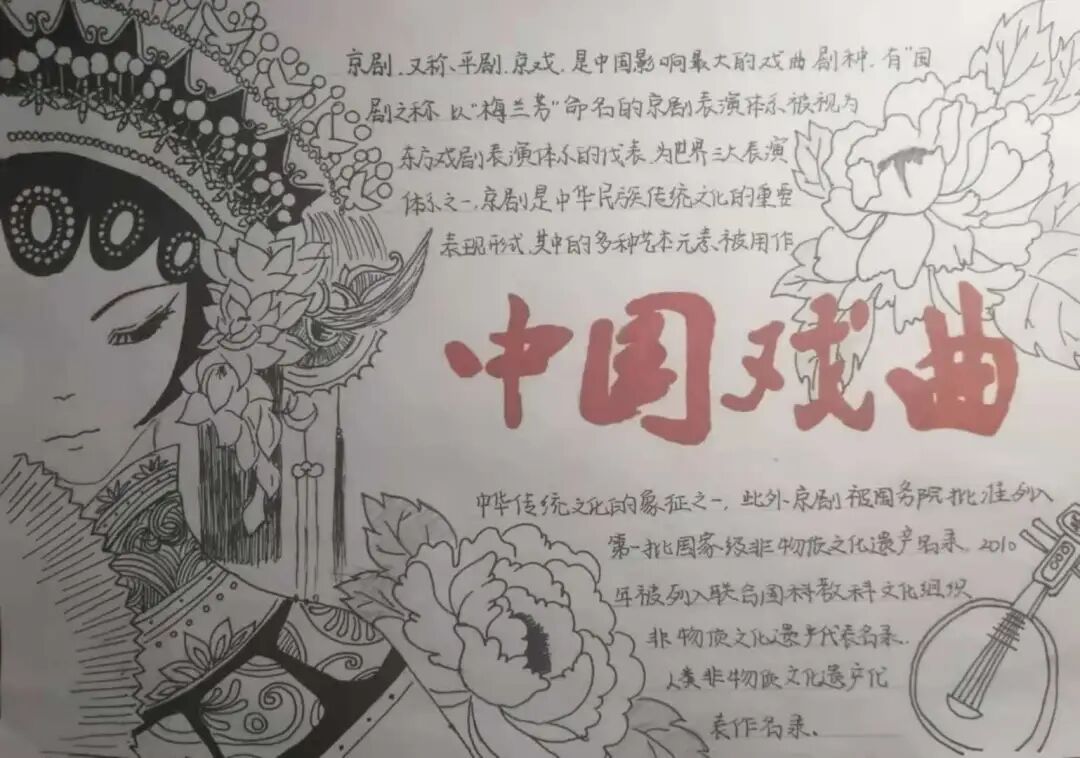 京剧,又称、平剧、京戏,是中国影响最大的戏曲剧种,有"国
剧之称 以"梅兰芳"命名的京剧表演体系被视为
东方戏剧表演体系的代表、为世界三大表演
体系之一,京剧是中华民族传统文化的重要
表现形式、其中的多种艺术元素、被用作
中国戏曲
中华传统文化的象征之一,此外,京剧被国务院批准列入
第一批国家级非物质文化遗产名录。2010
年被列入联合国科教科文化组织
非物质文化遗产代表名录.
人类非物质文化遗产化
表作名录.